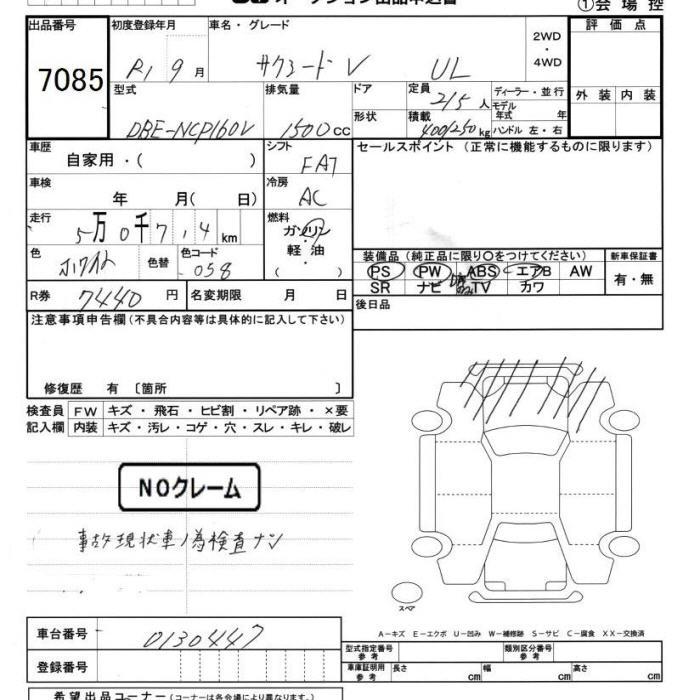 ①会場控
出品番号 初度登録年月 車名・グレード 2WD・4WD 評価点
7085 R1 9月 サクシードV UL
型式 排気量 ドア 定員 ディーラー・並行 外装 内装
DBE-NCP160V 1500cc 2/5人 モデル年式 年
形状 積載 400/250kg ハンドル 左・右
車歴 シフト セールスポイント (正常に機能するものに限ります)
自家用・( ) FAT
車検 冷房
年 月( 日) AC
走行 燃料
5万0千714km ガソリン
色 色替 色コード 軽油
ホワイト 058 ( )
装備品 (純正品に限り〇をつけてください) 新車保証書
PS PW ABS エアB AW 有・無
SR ナビ TV カワ
R券 7440円 名変期限 月 日 後日品
注意事項申告欄(不具合内容等は具体的に記入して下さい)
修復歴 有 〔箇所 〕
検査員 FW キズ・飛石・ヒビ割・リペア跡・×要
記入欄 内装 キズ・汚レ・コゲ・穴・スレ・キレ・破レ
NOクレーム
事故現状車ノ為検査ナシ
スペア
A-キズ E-エクボ U-凹み W-補修跡 S-サビ C-腐食 XX-交換済
車台番号 0130447
型式指定番号 参考 類別区分番号 参考
登録番号 車庫証明用 参考 長さ cm 幅 cm 高さ cm
希望出品コーナー(コーナーは各会場により異なります。)